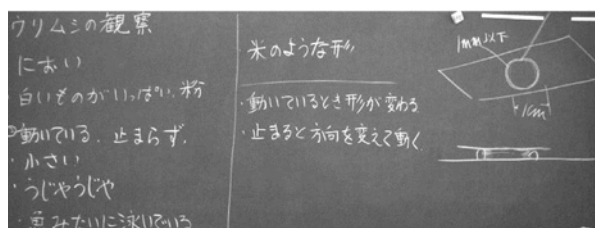 ウリムシの観察
におい
・白いものがいっぱい、粉
動いている、止まらず、
・小さい
・うじゃうじゃ
みたいに泳いでいる
米のような形
・動いているとき形が変わる
・止まると方向を変えて動く
1mm以下
1cm